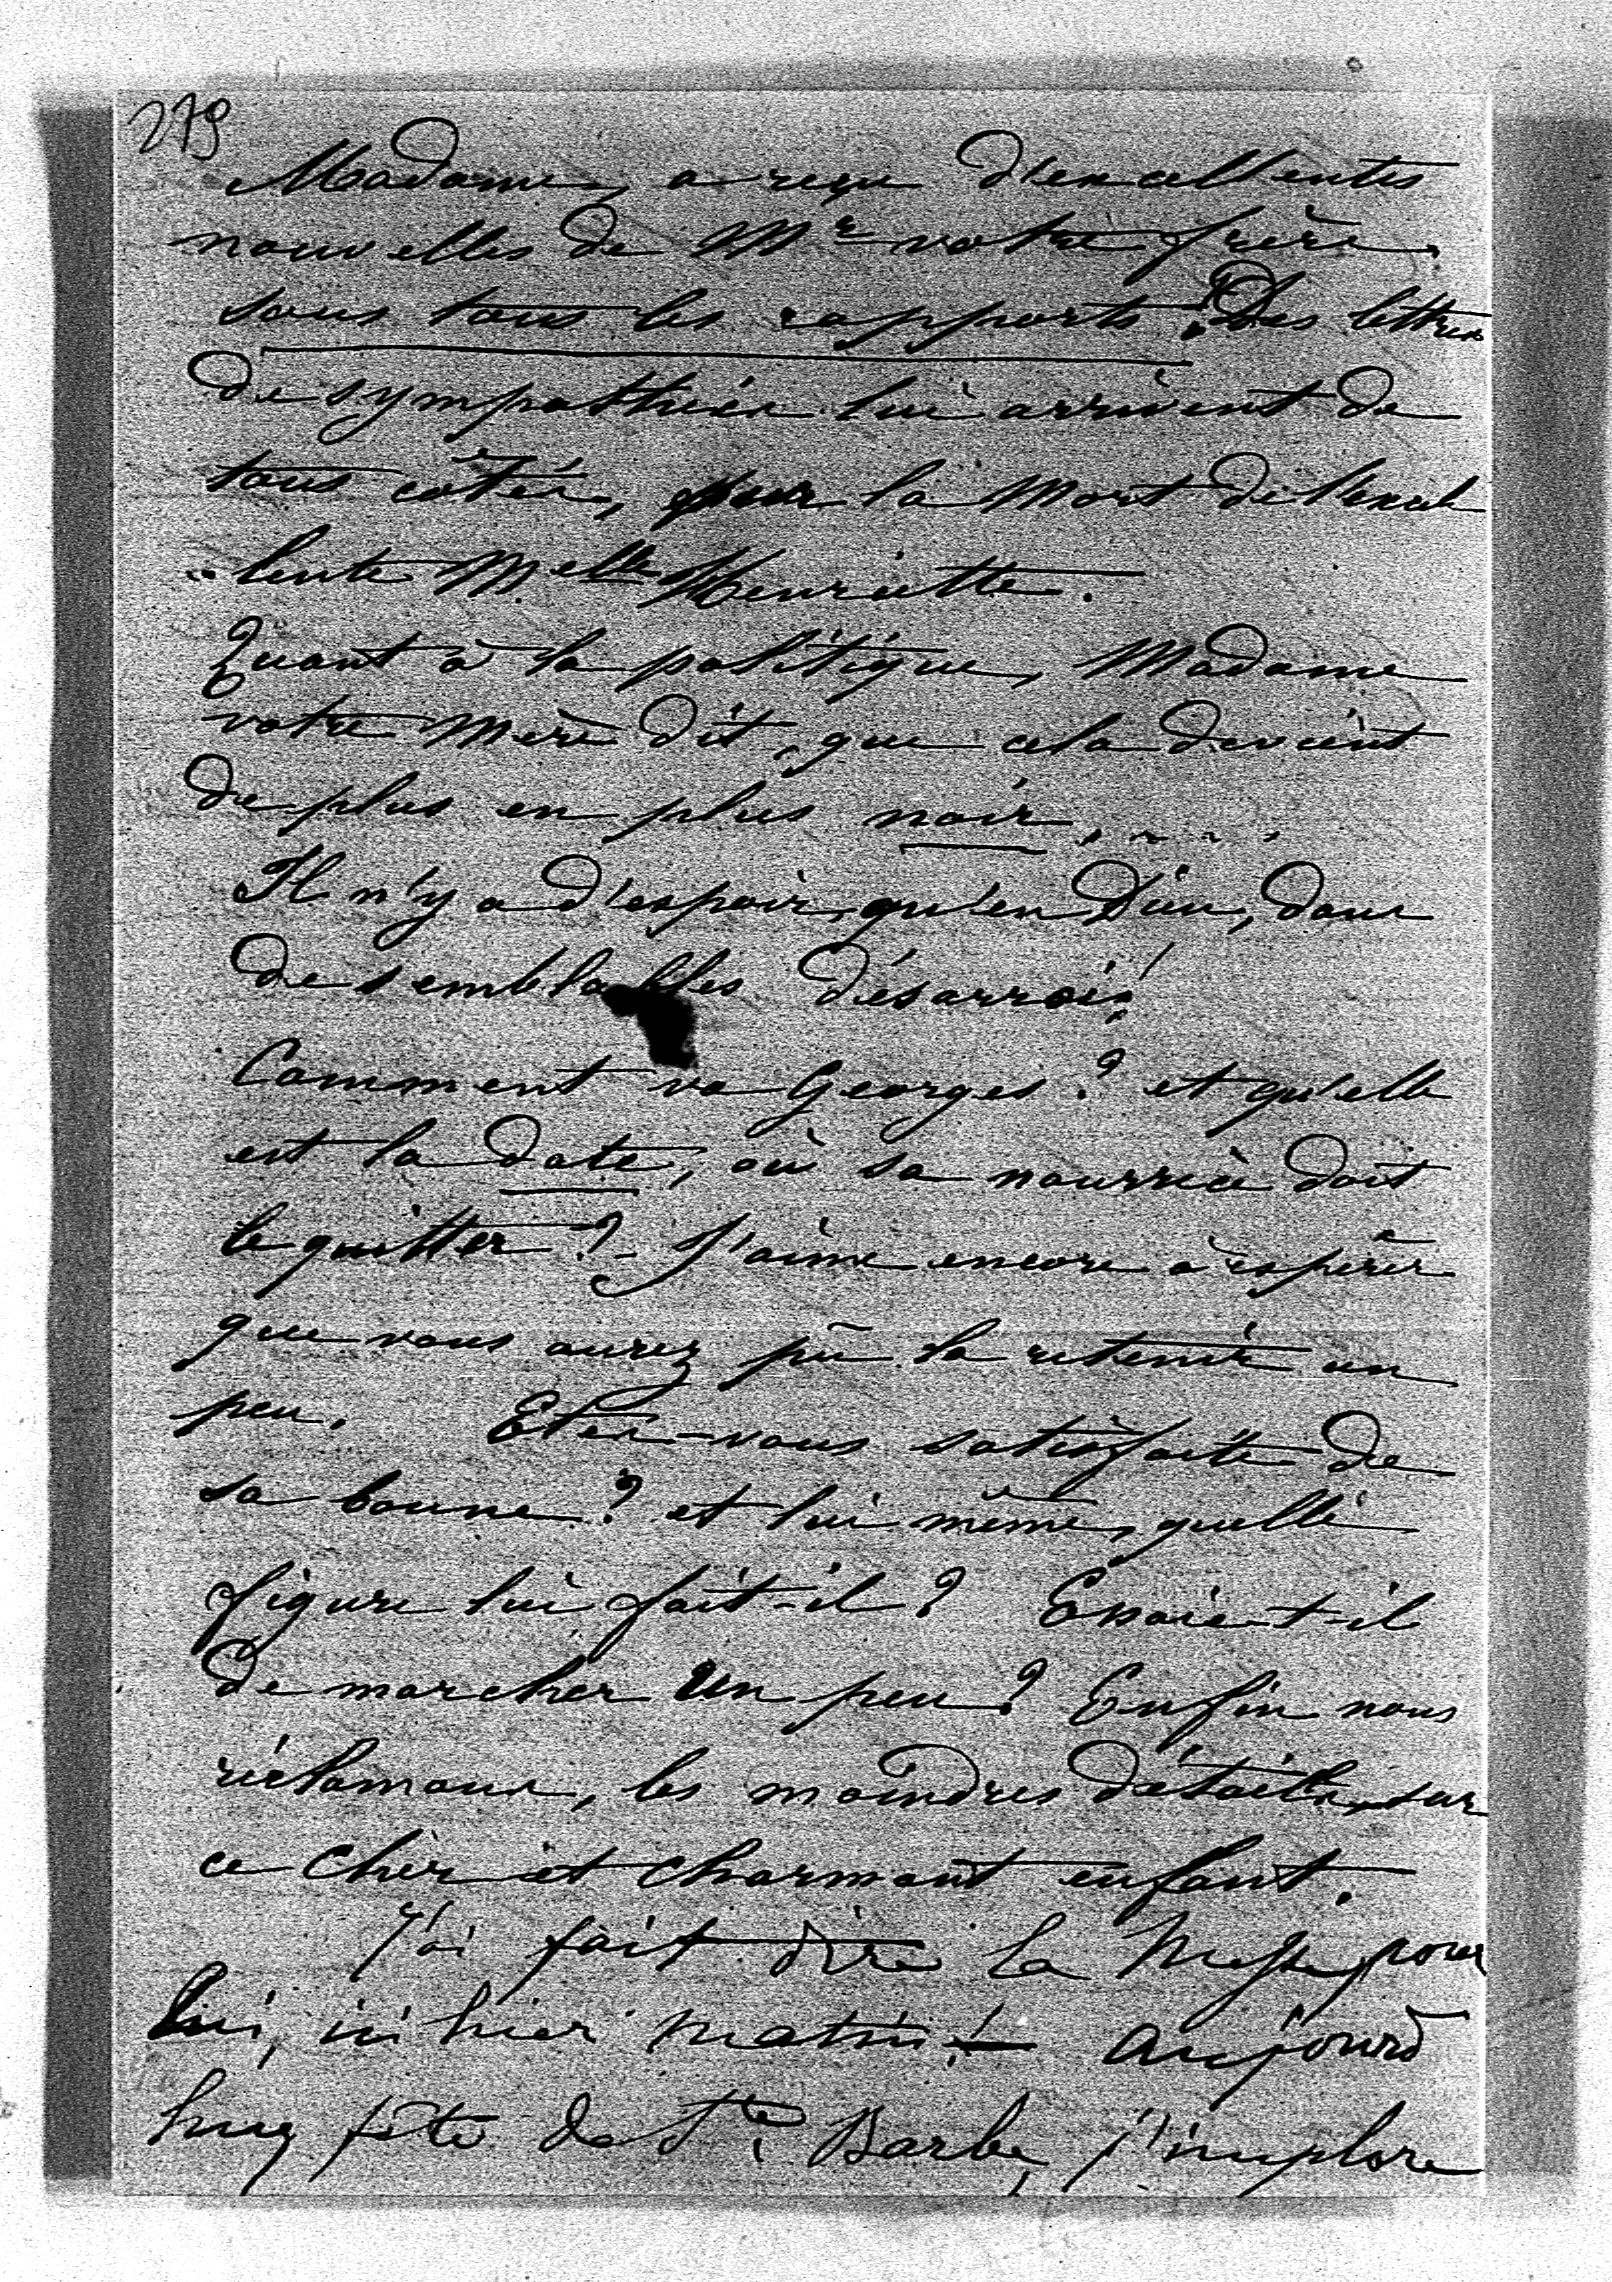 279
Madame, a reçu d'excellentes
nouvelles de Mr votre frère,
sous tous les rapports. Des lettres
de sympathies lui arrivent de
tous côtés, pour la Mort de l'excel
"lente Melle Henriette.
Quant à la politique, Madame
votre Mère dit, que cela devient
de plus en plus noir, . . . .
Il n'y a d'espoir, qu'en Dieu, dans
de semblables désarrois!
Comment va Georges? et qu'elle
est la date, où sa nourrice doit
le quitter? - J'aime encore à espérer
que vous aurez pû la retenir un
peu. Etes-vous satisfaite de
sa bonne? et lui même, quelle
figure lui fait-il? Essaie-t-il
de marcher un peu? Enfin nous
réclamons, les moindres détails, sur
ce cher et charmant enfant.
J'ai fait dire la Messe, pour
lui, ici hier matin! — Aujourd
huy fête de Ste Barbe, j'implore